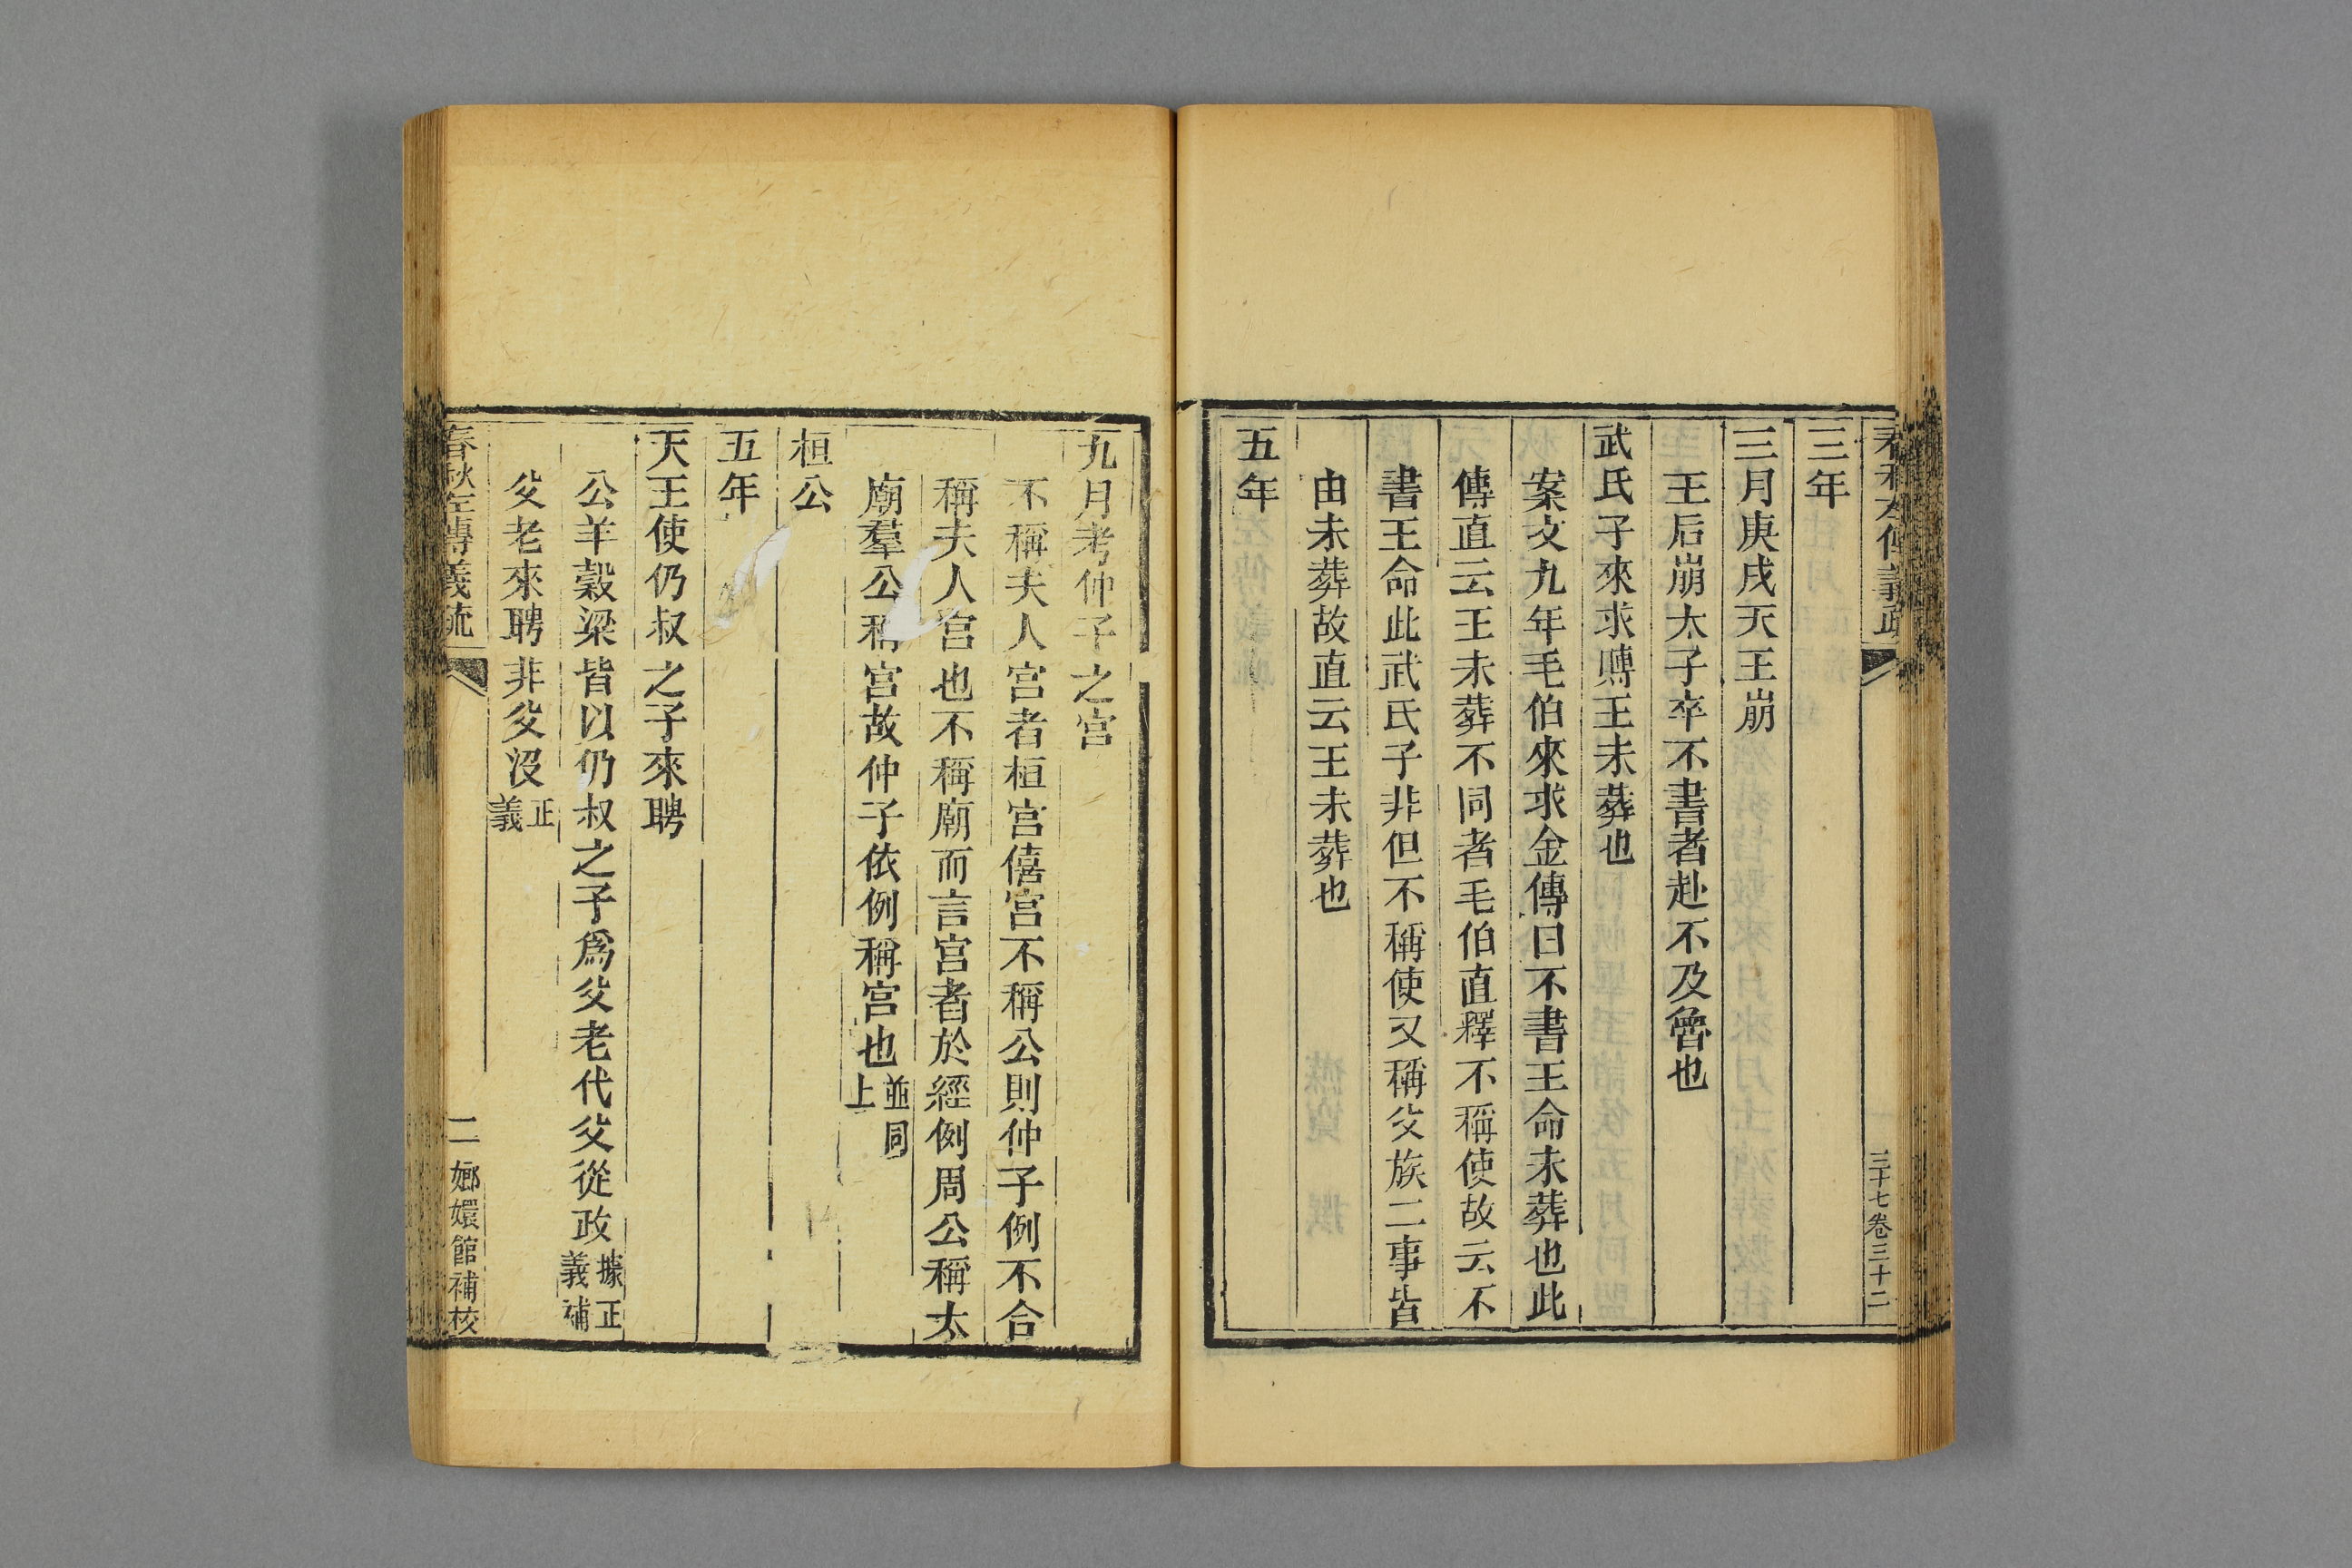 三年
三月庚戌天王崩
王后崩太子卒不書者赴不及魯也
武氏子來求賻王未葬也
案文九年毛伯來求金傳曰不書王命未葬也此
傳直云王未葬不同者毛伯直釋不稱使故云不
書王命此武氏子非但不稱使又稱父族二事皆
由未葬故直云王未葬也
五年
三十七卷三十二
九月考仲子之宮
不稱夫人宮者桓宮僖宮不稱公則仲子例不合
稱夫人宮也不稱廟而言宮者於經例周公稱太
廟羣公稱宮故仲子依例稱宮也並同上
桓公
五年
天王使仍叔之子來聘
公羊穀梁皆以仍叔之子爲父老代父從政據正義補
父老來聘非父沒正義
春秋左傳義疏
二
嫏嬛館補校